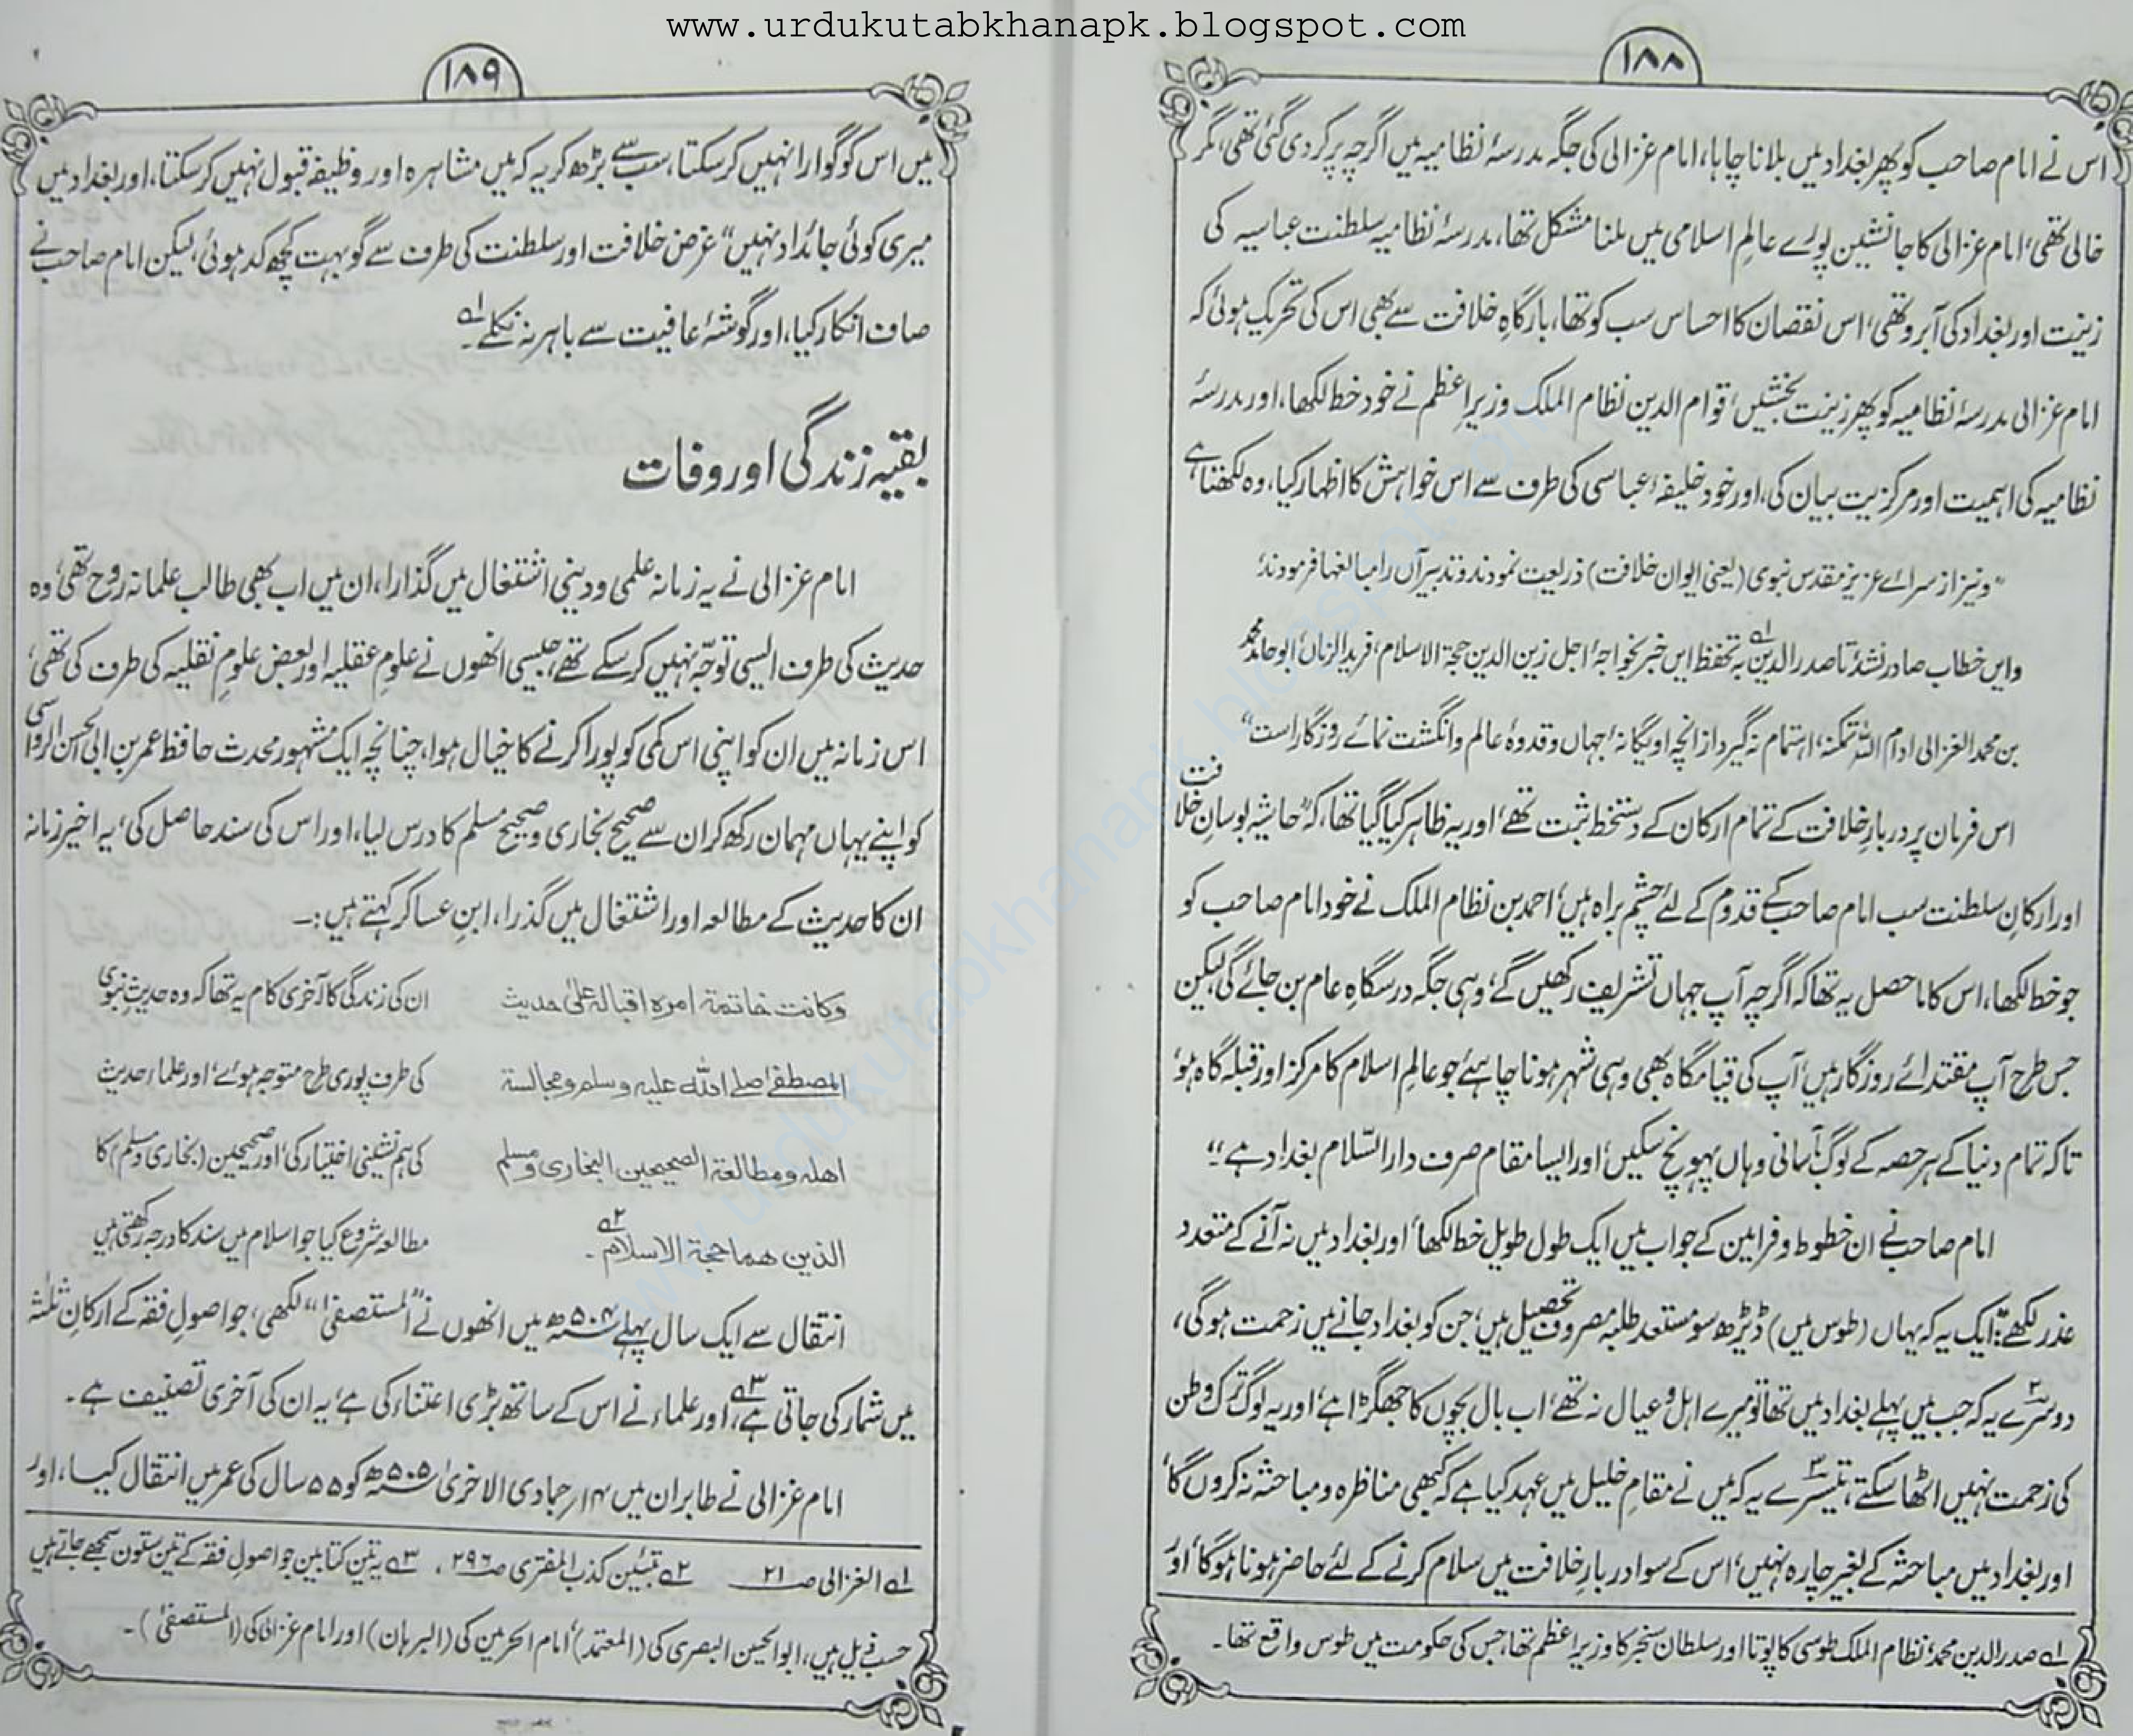 www.urdukutabkhanapk.blogspot.com
۱۸۸
اس نے امام صاحب کو پھر بغداد میں بلانا چاہا، امام غزالی کی جگہ مدرسۂ نظامیہ میں اگرچہ پر کر دی گئی تھی، مگر
خالی تھی، امام غزالی کا جانشین پورے عالمِ اسلامی میں ملنا مشکل تھا، مدرسۂ نظامیہ سلطنت عباسیہ کی
زینت اور بغداد کی آبرو تھی، اس نقصان کا احساس سب کو تھا، بارگاہِ خلافت سے بھی اس کی تحریک ہوئی کہ
امام غزالی مدرسۂ نظامیہ کو پھر زینت بخشیں، قوام الدین نظام الملک وزیرِ اعظم نے خود خط لکھا، اور مدرسۂ
نظامیہ کی اہمیت اور مرکزیت بیان کی، اور خود خلیفۂ عباسی کی طرف سے اس خواہش کا اظہار کیا، وہ لکھتا ہے
"ونیز از سرائے عزیز مقدس نبوی (یعنی ایوان خلافت) ذریعت نمودند و تدبیر آں را مبالغہا فرمودند،
وایں خطاب صادر نشد تا صدر الدین لہ بہ تحفظ ایں خبر بخواجۂ اجل زین الدین حجۃ الاسلام، فرید الزماں، ابو حامد محمد
بن محمد الغزالی ادام اللہ تمکنہ، اہتمام نہ گیرد از انچہ او یگانۂ جہاں و قدوۂ عالم و انگشت نمائے روزگار است"
اس فرمان پر دربارِ خلافت کے تمام ارکان کے دستخط ثبت تھے، اور یہ ظاہر کیا گیا تھا، کہ "حاشیہ بوسانِ خلافت
اور ارکانِ سلطنت سب امام صاحب کے قدوم کے لئے چشم براہ ہیں، احمد بن نظام الملک نے خود امام صاحب کو
جو خط لکھا، اس کا ماحصل یہ تھا کہ اگرچہ آپ جہاں تشریف رکھیں گے، وہی جگہ درسگاہِ عام بن جائے گی لیکن
جس طرح آپ مقتدائے روزگار ہیں، آپ کی قیامگاہ بھی وہی شہر ہونا چاہئے جو عالمِ اسلام کا مرکز اور قبلہ گاہ ہو،
تاکہ تمام دنیا کے ہر حصہ کے لوگ بآسانی وہاں پہونچ سکیں، اور ایسا مقام صرف دار السّلام بغداد ہے"
امام صاحب نے ان خطوط و فرامین کے جواب میں ایک طول طویل خط لکھا، اور بغداد میں نہ آنے کے متعدد
عذر لکھے: "ایک یہ کہ یہاں (طوس میں) ڈیڑھ سو مستعد طلبہ مصروفِ تحصیل ہیں، جن کو بغداد جانے میں زحمت ہوگی،
دوسرے۲ یہ کہ جب میں پہلے بغداد میں تھا تو میرے اہل و عیال نہ تھے، اب بال بچوں کا جھگڑا ہے، اور یہ لوگ ترک وطن
کی زحمت نہیں اٹھا سکتے، تیسرے۳ یہ کہ میں نے مقامِ خلیل میں عہد کیا ہے کہ کبھی مناظرہ و مباحثہ نہ کروں گا،
اور بغداد میں مباحثہ کے بغیر چارہ نہیں، اس کے سوا دربارِ خلافت میں سلام کرنے کے لئے حاضر ہونا ہوگا، اور
لہ صدر الدین محمد، نظام الملک طوسی کا پوتا اور سلطان سنجر کا وزیرِ اعظم تھا، جس کی حکومت میں طوس واقع تھا۔
۱۸۹
میں اس کو گوارا نہیں کر سکتا، سب سے بڑھ کر یہ کہ میں مشاہرہ اور وظیفہ قبول نہیں کر سکتا، اور بغداد میں
میری کوئی جائداد نہیں" غرض خلافت اور سلطنت کی طرف سے گو بہت کچھ کد ہوئی، لیکن امام صاحب نے
صاف انکار کیا، اور گوشۂ عافیت سے باہر نہ نکلے۔ لہ
بقیہ زندگی اور وفات
امام غزالی نے یہ زمانہ علمی و دینی اشتغال میں گذارا، ان میں اب بھی طالب علمانہ روح تھی، وہ
حدیث کی طرف ایسی توجّہ نہیں کر سکے تھے، جیسی انھوں نے علومِ عقلیہ اور بعض علومِ نقلیہ کی طرف کی تھی،
اس زمانہ میں ان کو اپنی اس کمی کو پورا کرنے کا خیال ہوا، چنانچہ ایک مشہور محدث حافظ عمر بن ابی الحسن الرواسی
کو اپنے یہاں مہمان رکھ کر ان سے صحیح بخاری و صحیح مسلم کا درس لیا، اور اس کی سند حاصل کی، یہ اخیر زمانہ
ان کا حدیث کے مطالعہ اور اشتغال میں گذرا، ابنِ عساکر کہتے ہیں :۔
وکانت خاتمۃ امرہ اقبالہ علی حدیث
المصطفیٰ صلے اللہ علیہ وسلم ومجالسۃ
اھلہ ومطالعۃ الصحیحین البخاری ومسلم
الذین ھما حجۃ الاسلام۔ ۲ہ
ان کی زندگی کا آخری کام یہ تھا کہ وہ حدیثِ نبوی
کی طرف پوری طرح متوجہ ہوئے، اور علماء حدیث
کی ہم نشینی اختیار کی، اور صحیحین (بخاری و مسلم) کا
مطالعہ شروع کیا جو اسلام میں سند کا درجہ رکھتی ہیں
انتقال سے ایک سال پہلے ۵۰۴ھ میں انھوں نے "المستصفیٰ" لکھی، جو اصولِ فقہ کے ارکانِ ثلٰثہ
میں شمار کی جاتی ہے، ۳ہ اور علماء نے اس کے ساتھ بڑی اعتناء کی ہے، یہ ان کی آخری تصنیف ہے۔
امام غزالی نے طابران میں ۱۴ر جمادی الاخریٰ ۵۰۵ھ کو ۵۵ سال کی عمر میں انتقال کیا، اور
لہ الغزالی ص۲۱ ۲ہ تبیین کذب المفتری ص۲۹۶، ۳ہ یہ تین کتابیں جو اصولِ فقہ کے تین ستون سمجھے جاتے ہیں
حسب ذیل ہیں، ابو الحسین البصری کی (المعتمد)، امام الحرمین کی (البرہان) اور امام غزالی کی (المستصفیٰ)۔